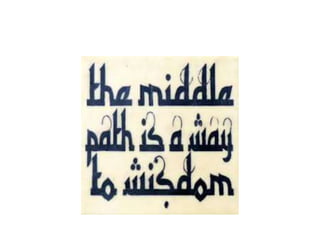 the middle
path is a way
to wisdom